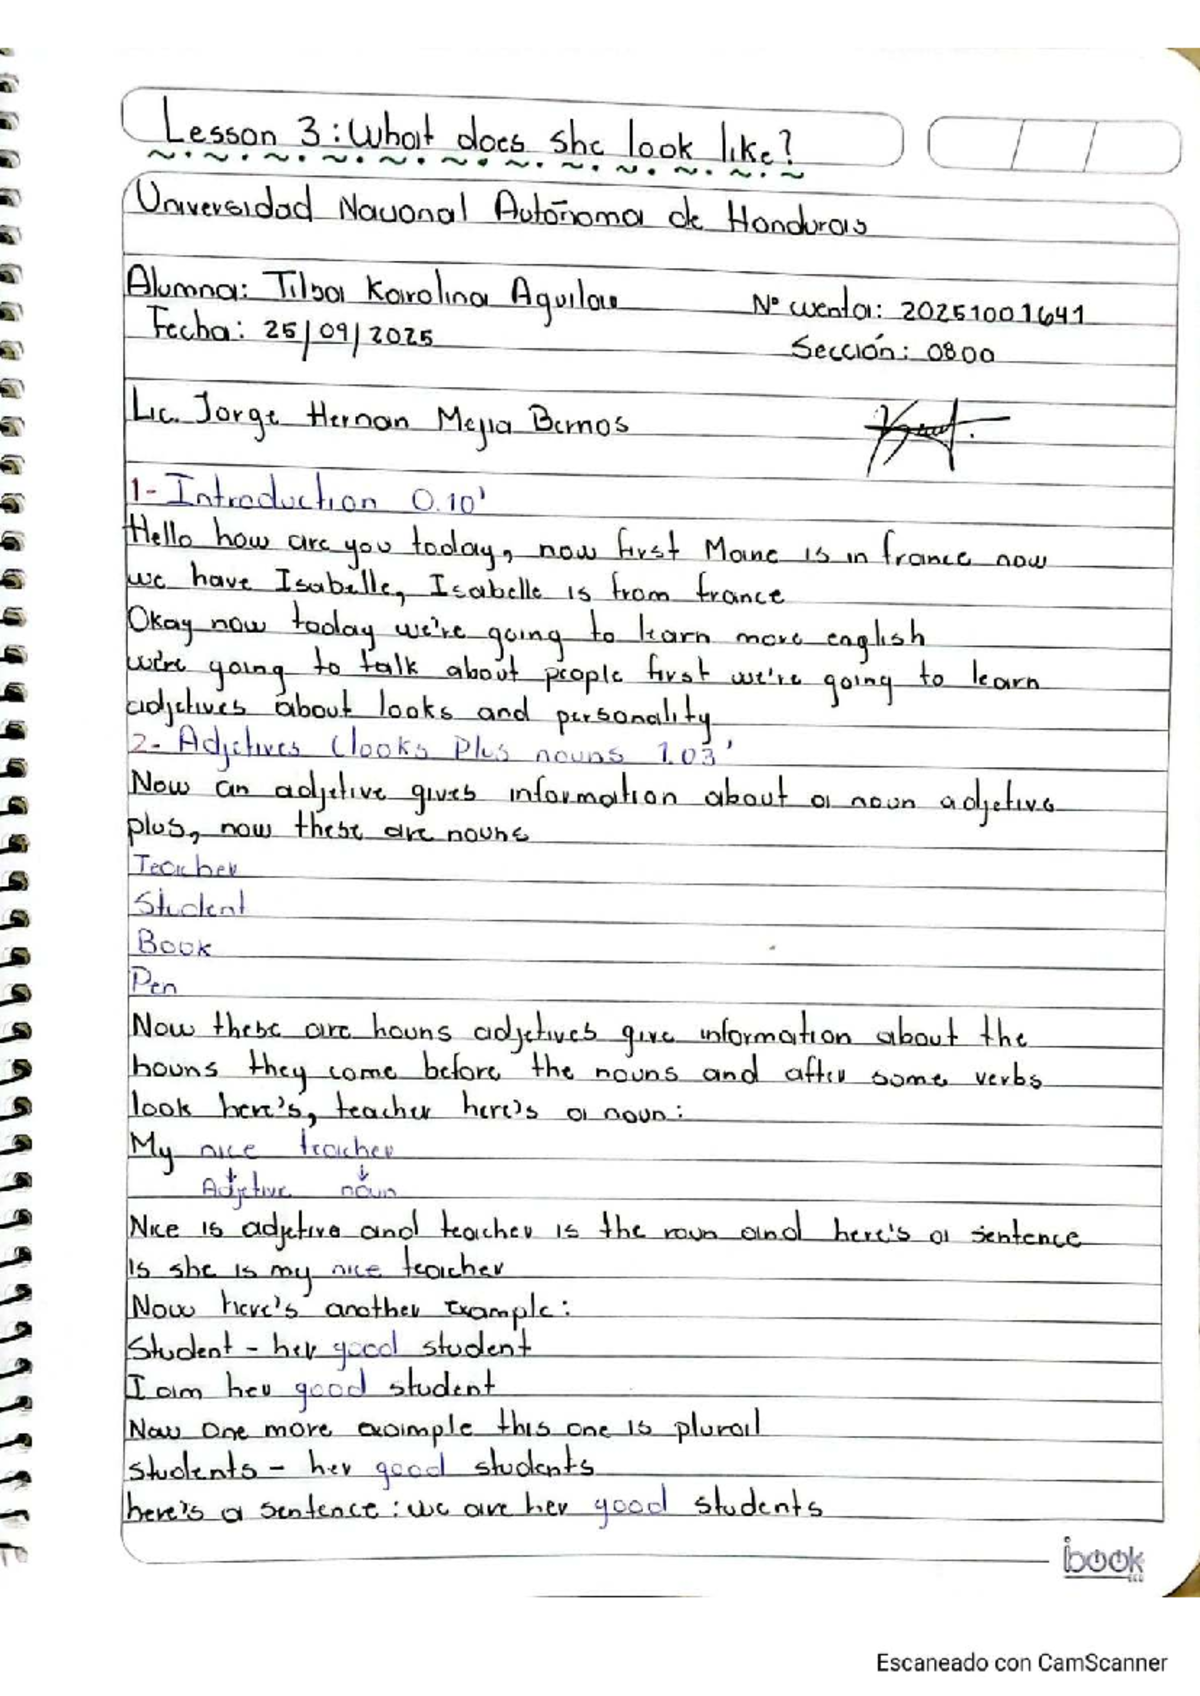 Lesson 3: What does she look like?
Universidad Nacional Autónoma de Honduras
Alumna: Tilsa Karolina Aguilar N° cuenta: 20251001641
Fecha: 25/09/2025 Sección: 0800
Lic. Jorge Hernan Mejia
1- Introduction 0.10'
Hello how are you today, now first Marie is in france now
we have Isabelle, Isabelle is from france
Okay now today we're going to learn more english
we're going to talk about people first we're going to learn
adjetives about looks and personality
2- Adjetives (looks Plus nouns 1.03'
Now an adjetive gives information about a noun adjetive
plus, now these are nouns
Teacher
Student
Book
Pen
Now these are nouns adjetives give information about the
nouns they come before the nouns and after some verbs
look here's, teacher here's a noun:
My nice teacher
Adjetive noun
Nice is adjetive and teacher is the noun and here's a sentence
is she is my nice teacher
Now here's another example:
Student - her good student
I am her good student
Now one more example this one is plural
students - her good students
here's a sentence: we are her good students
book
Escaneado con CamScanner